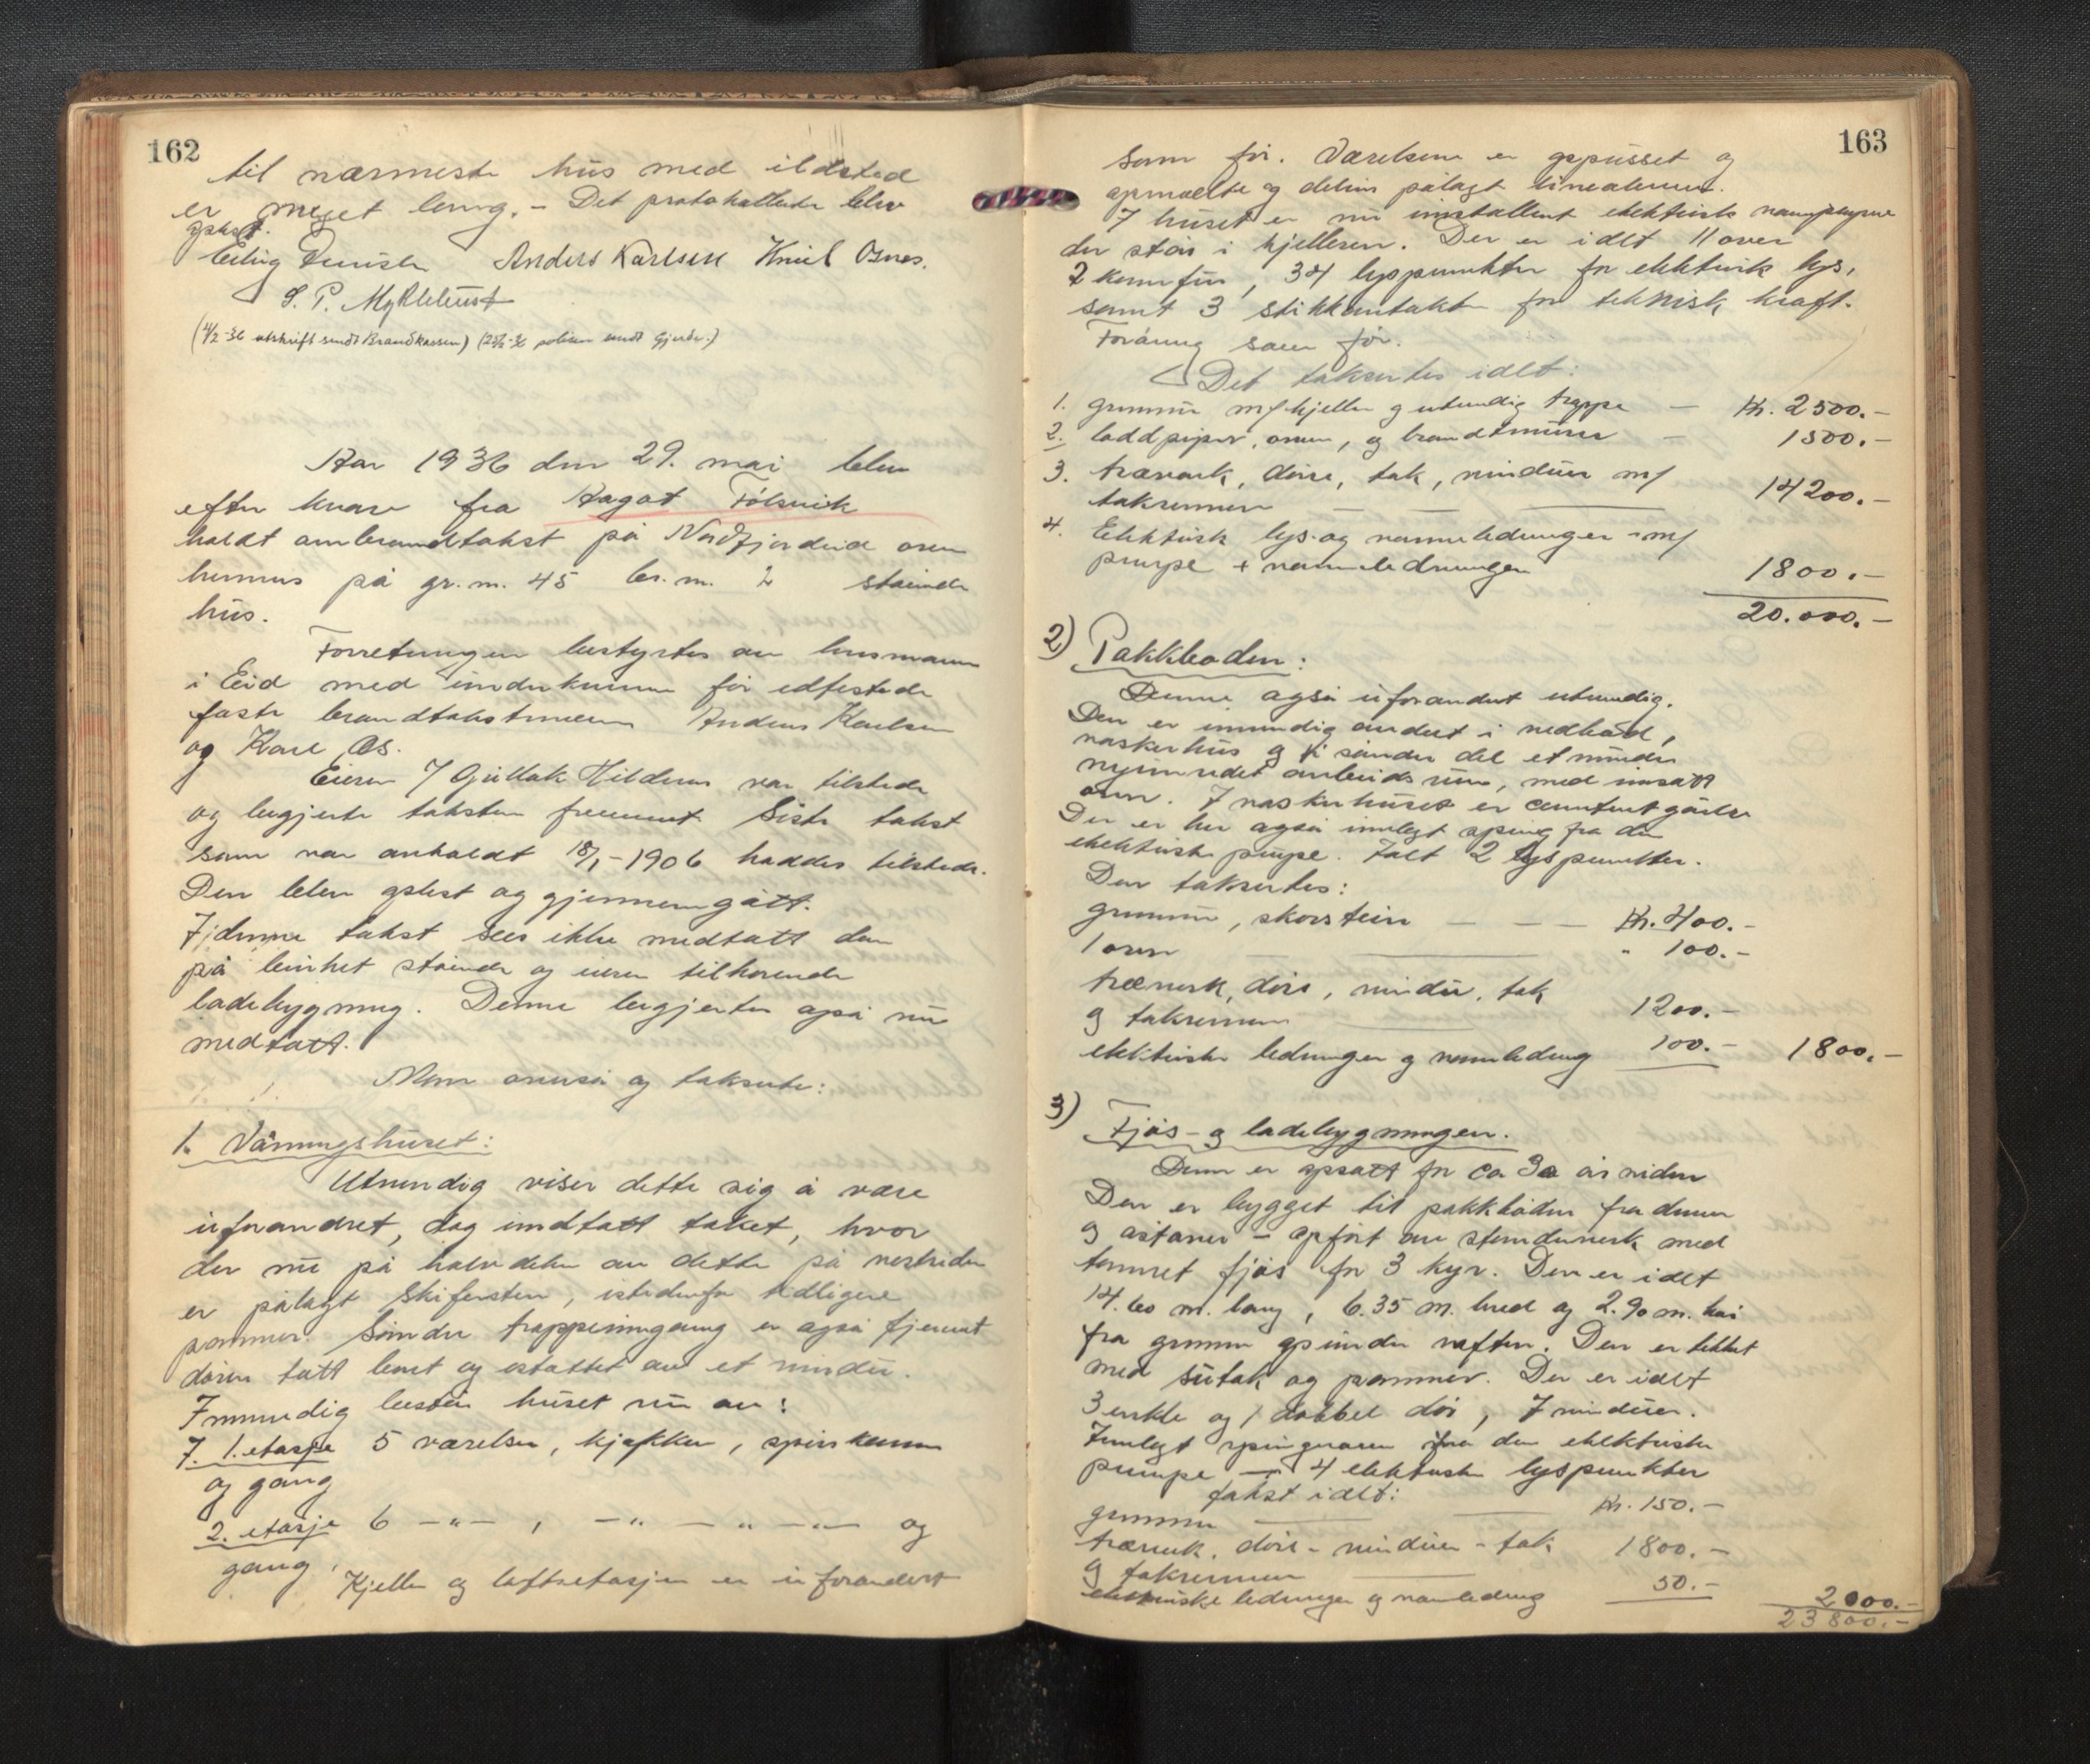 162
til nærmeste hus med ildsted
er meget lang. - Det protokollerte blev
oplest.
Anders Karlsen Knut Osnes.
S. P. Myklebust
(4/2-36 utskrift sendt Brandkassen) polisen sendt Gjerde.)
Aar 1936 den 29. mai blev
efter krav fra Ragat Følsvik
holdt ombrandtakst på Nordfjordeid over
hennes på gr.n. 45 br.n. 2 stående
hus.
Forretningen bestyrtes av lensmannen
i Eid med underkunne før edfestede
faste brandtakstmenn Anders Karlsen
og Karl Os.
Eieren Gullak Hilderen var tilstede
og begjerte taksten fremmet. Siste takst
som var avholdt 18/1-1906 haddes tilstede.
Den blev oplest og gjennemgått.
I denne takst sees ikke medtatt den
på bruket stående og eieren tilhørende
ladebygning. Denne begjertes også nu
medtatt.
Man avså og takserte:
1. Våningshuset:
Utvendig viser dette sig å være
uforandret, dog undtatt taket, hvor
der nu på halvdelen av dette på vestsiden
er pålagt skifersten, istedenfor tidligere
panner. Søndre trappeinngang er også fjernet
døren tatt bort og erstattet av et vindu.
Innvendig består huset nu av:
I. 1. etasje 5 værelser, kjøkken, spiskammer
og gang
2. etasje 6 -"- , -"- -"- og
gang.
Kjeller og loftsetasjen er uforandert
163
som før. Værelsene er oppusset og
opmalte og delvis pålagt linoleum.
I huset er nu installert elektrisk vannpumpe
der står i kjelleren. Der er idlt 11 ovner
2 komfur, 34 lyspunkter for elektrisk lys,
samt 3 stikkontakter for teknisk kraft.
Foråring som før.
Det takseres idlt:
1. grunnmur m/ kjeller og utvendig trappe - Kr. 2500.-
2. loddpiper, ovner, og brandtmurer - 1500.-
3. treverk, døre, tak, vinduer m/
takrenner 14200.-
4. Elektrisk lys- og varmeledninger m/
pumpe + vannledninger 1800.-
20.000.-
2) Pakkboden:
Denne også uforandret utvendig.
Den er innvendig ændret i vedbod,
vaskerhus og i søndre del et mindre
nyinnredet arbeidsrum, med innsatt
ovn. I vaskerhuset er cementgulv
Der er her også innlagt spring fra den
elektriske pumpe. Ialt 2 lyspunkter.
Den takseres:
grunnmur, skorstein - - - Kr. 400.-
1 ovn " 100.-
treverk, døre, vindu, tak
og takrenner 1200.-
elektriske ledninger og vannledning 100.- 1800.-
3) Fjøs- og ladebygningen.
Denne er opsatt for ca 30 år siden
Den er bygget til pakkboden fra denne
og østover - opført av stenderverk med
tømret fjøs for 3 kyr. Den er idlt
14.60 m. lang, 6.35 m. bred og 2.90 m. høi
fra grunnen op under raften. Den er tekket
med sutak og panner. Der er idlt
3 enkle og 1 dobbel dør, 7 vinduer.
Innlagt springvann fra den elektriske
pumpe - 4 elektriske lyspunkter
takst idlt:
grunnmur Kr. 150.-
treverk, døre - vinduer - tak
og takrenner 1800.-
elektriske ledninger og vannledning 50.- 2000.-
23800.-